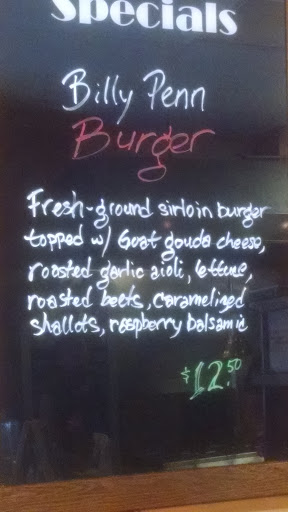 Specials
Billy Penn
Burger
Fresh-ground sirloin burger
topped w/ Goat gouda cheese,
roasted garlic aioli, lettuce,
roasted beets, caramelized
shallots, raspberry balsamic
$12.50